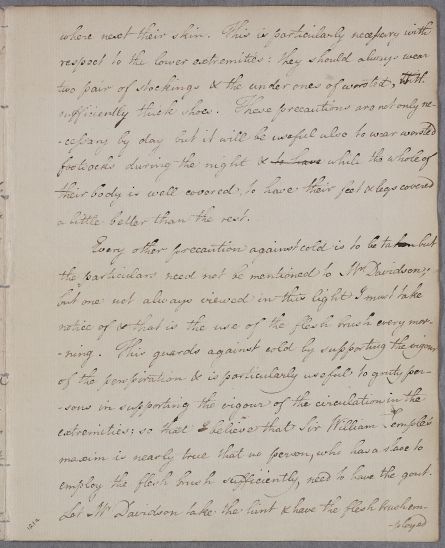 where next their skin. This is particularly necessary with
respect to the lower extremities: they should always wear
two pair of stockings & the under ones of worsted, with
sufficiently thick shoes. These precautions are not only ne-
-cessary by day but it will be useful also to wear worsted
footsocks during the night & to have while the whole of
their body is well covered, to have their feet & legs covered
a little better than the rest.
Every other precaution against cold is to be taken but
the particulars need not be mentioned to Mr Davidson;
but one not always viewed in this light I must take
notice of & that is the use of the flesh brush every mor-
-ning. This guards against cold by supporting the vigour
of the perspiration & is particularly useful to gouty per-
-sons in supporting the vigour of the circulation in the
extremities; so that I believe that Sir William Temple's
maxim is nearly true that no person, who has a slave to
employ the flesh brush sufficiently, need to have the gout.
Let Mr Davidson take the hint & have the flesh brush em-
-ployed